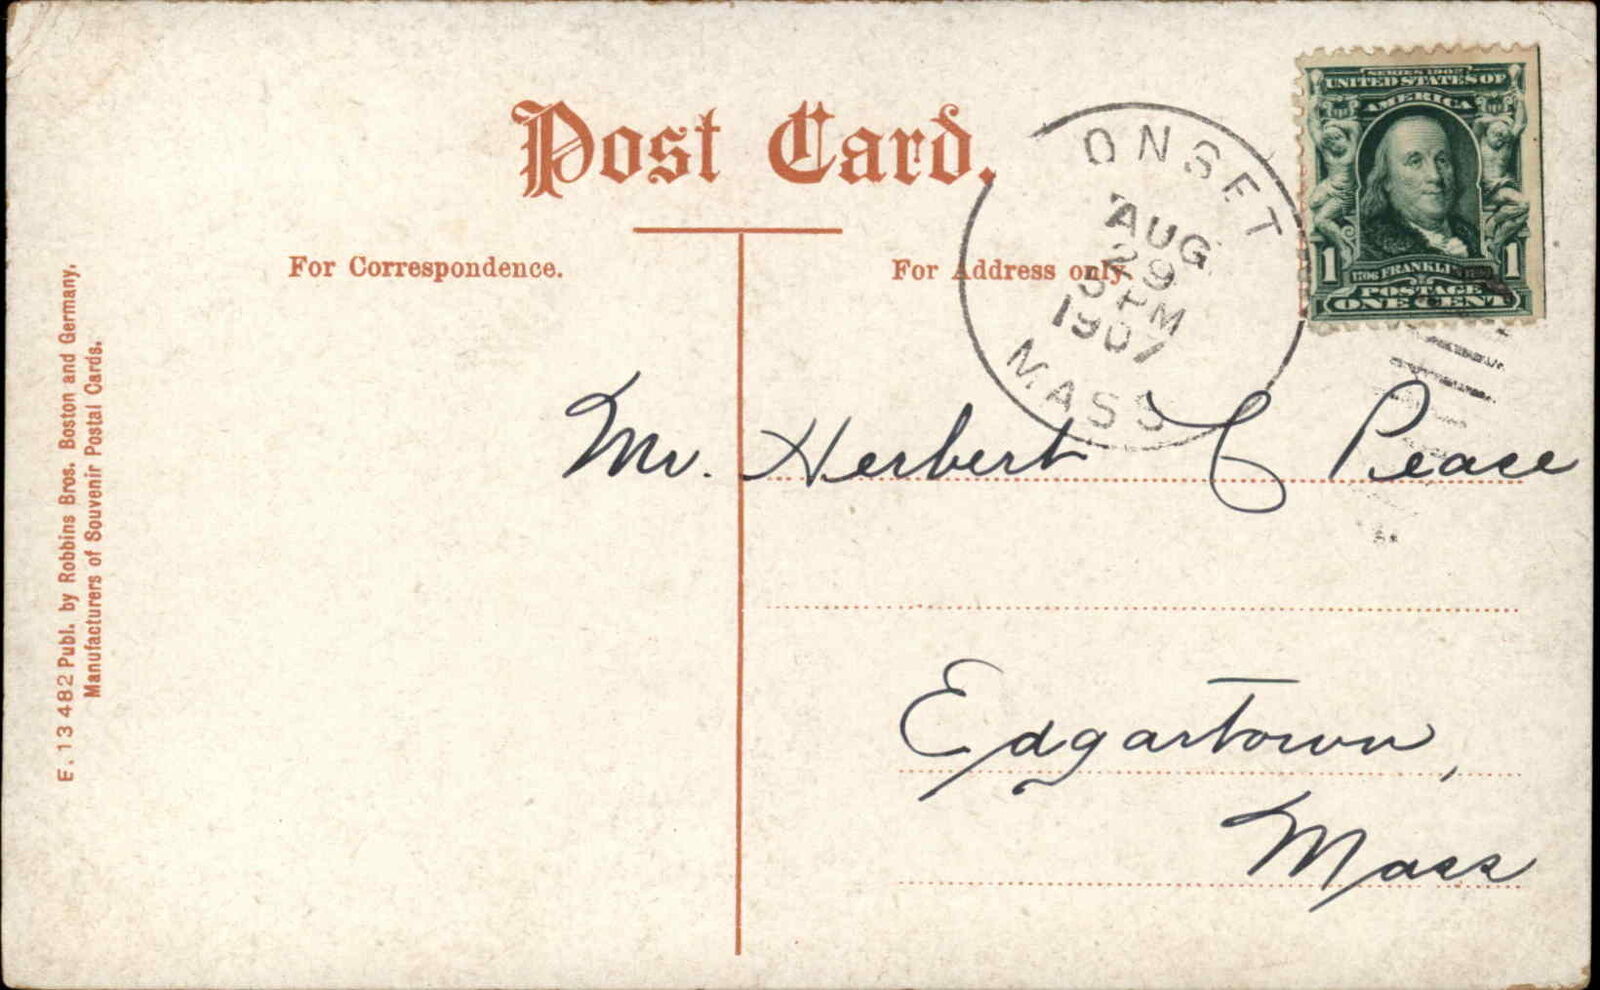 Post Card.
For Correspondence.
For Address only.
ONSET
AUG
29
5 PM
1907
MASS
SERIES 1902
UNITED STATES OF
AMERICA
1706 FRANKLIN 1790
1 POSTAGE 1
ONE CENT
Mr. Herbert C Pease
Edgartown,
Mass
E. 13482 Publ. by Robbins Bros. Boston and Germany.
Manufacturers of Souvenir Postal Cards.